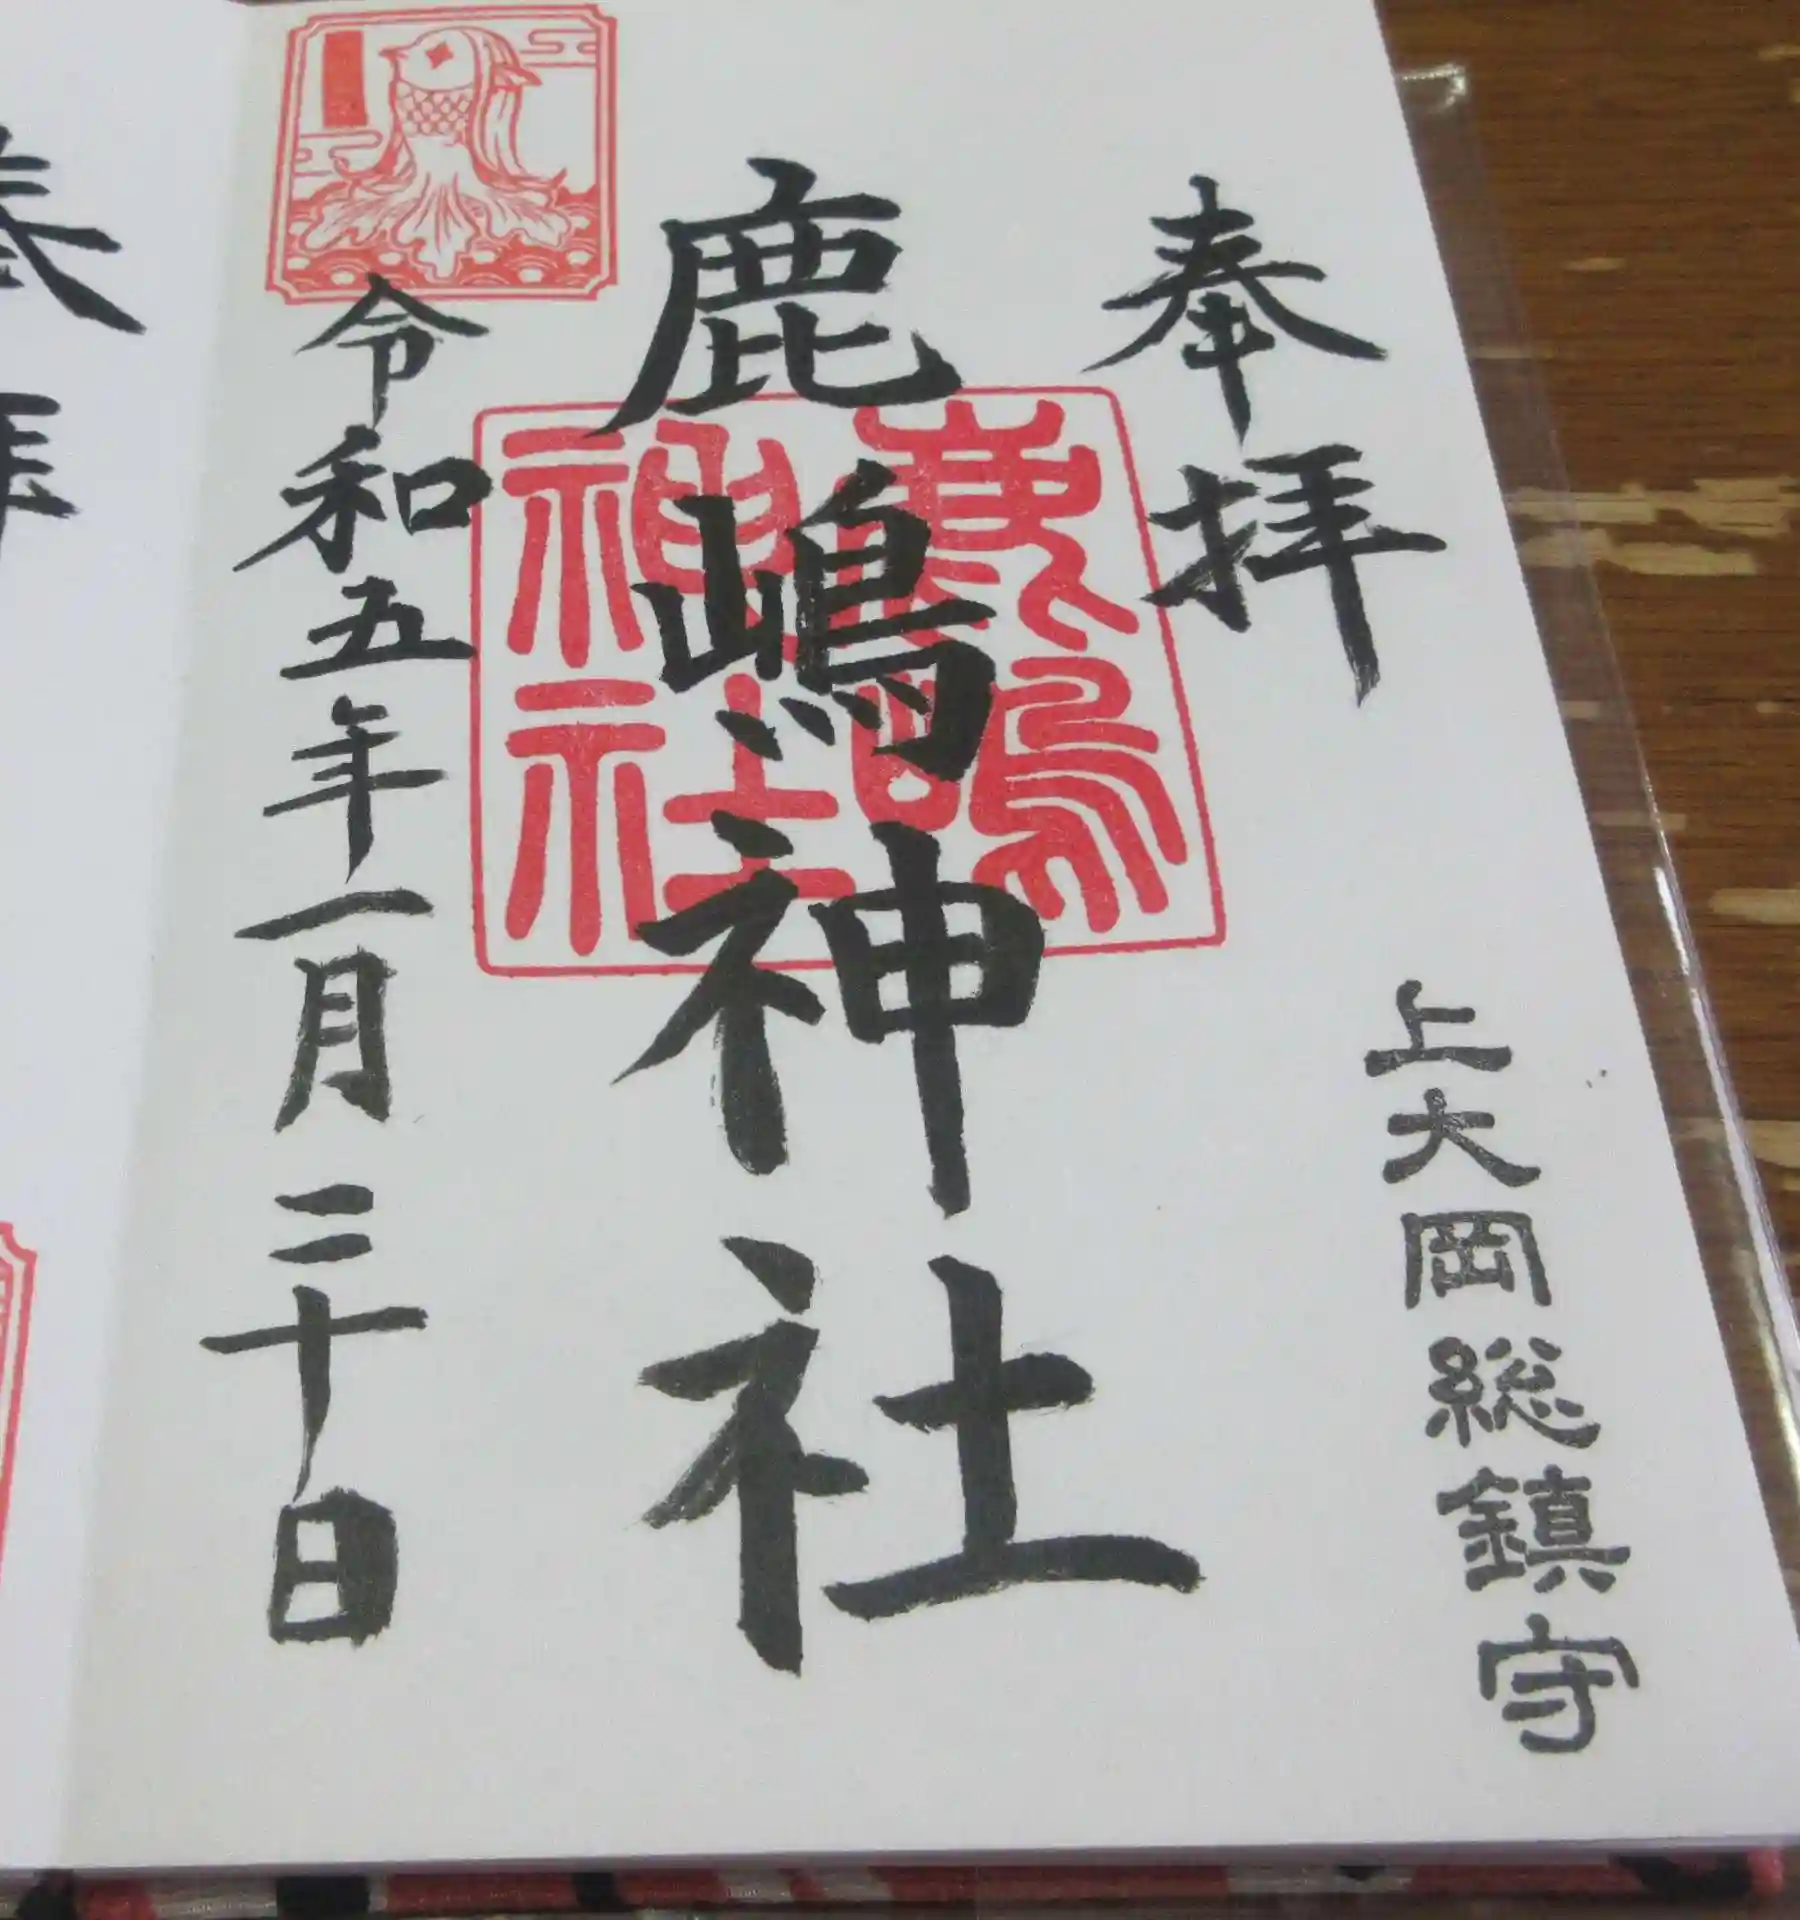 奉拝
上大岡総鎮守
鹿嶋神社
鹿嶋
神社
令和五年一月三十日
奉拝